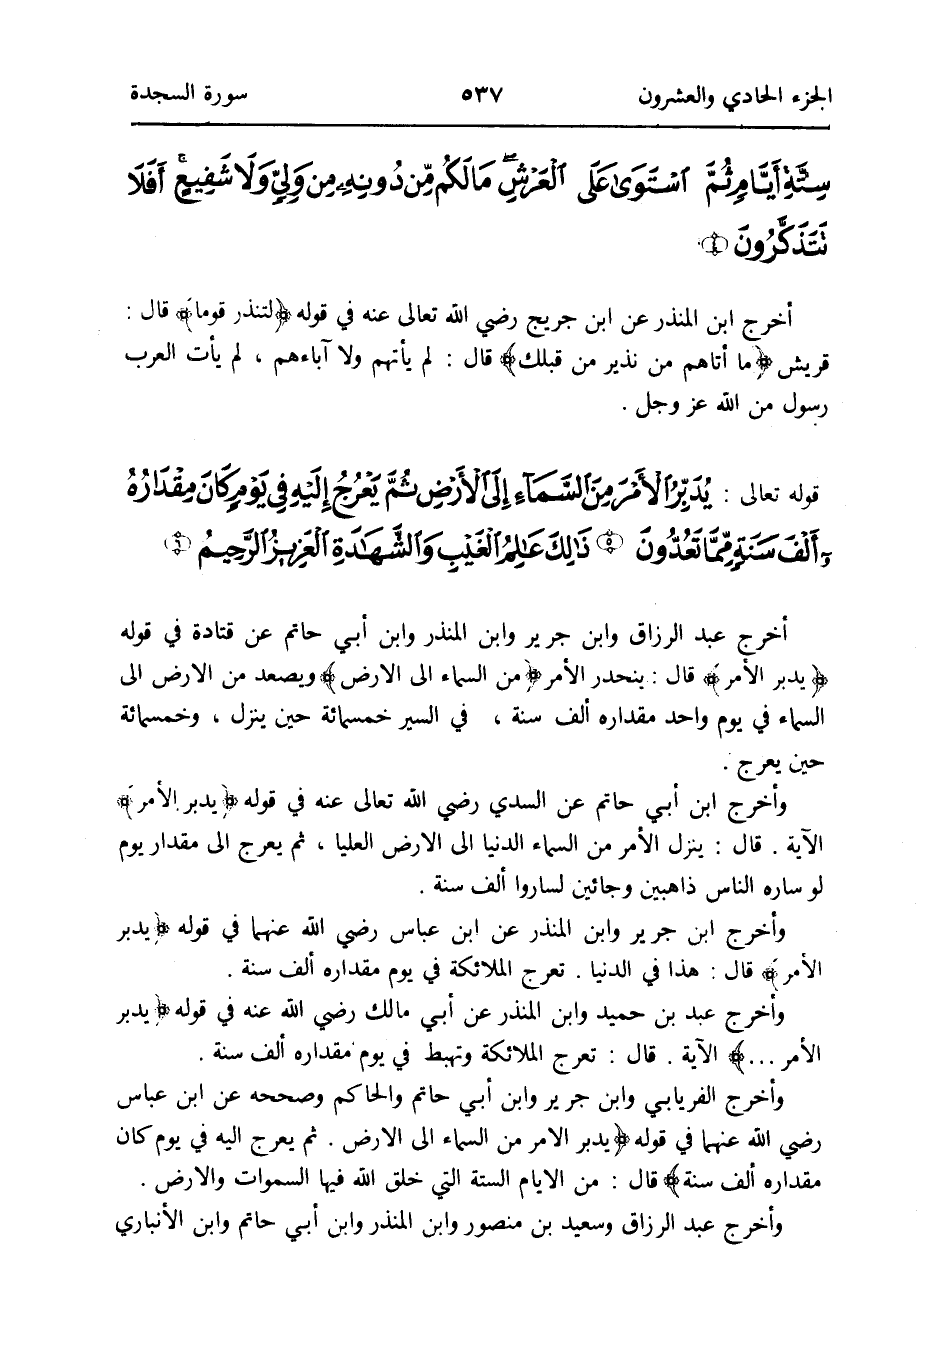 الجزء الحادي والعشرون ٥٣٧ سورة السجدة
سِتَّةِ أَيَّامٍ ثُمَّ اسْتَوَىٰ عَلَى الْعَرْشِ ۖ مَا لَكُم مِّن دُونِهِ مِن وَلِيٍّ وَلَا شَفِيعٍ ۚ أَفَلَا
تَتَذَكَّرُونَ ﴿٤﴾
أخرج ابن المنذر عن ابن جريج رضي الله تعالى عنه في قوله ﴿لتنذر قوما﴾ قال :
قريش ﴿ما أتاهم من نذير من قبلك﴾ قال : لم يأتهم ولا آباءهم ، لم يأت العرب
رسول من الله عز وجل .
قوله تعالى : يُدَبِّرُ الْأَمْرَ مِنَ السَّمَاءِ إِلَى الْأَرْضِ ثُمَّ يَعْرُجُ إِلَيْهِ فِي يَوْمٍ كَانَ مِقْدَارُهُ
أَلْفَ سَنَةٍ مِّمَّا تَعُدُّونَ ﴿٥﴾ ذَٰلِكَ عَالِمُ الْغَيْبِ وَالشَّهَادَةِ الْعَزِيزُ الرَّحِيمُ ﴿٦﴾
أخرج عبد الرزاق وابن جرير وابن المنذر وابن أبي حاتم عن قتادة في قوله
﴿يدبر الأمر﴾ قال : ينحدر الأمر ﴿من السماء الى الارض﴾ ويصعد من الارض الى
السماء في يوم واحد مقداره ألف سنة ، في السير خمسمائة حين ينزل ، وخمسمائة
حين يعرج .
وأخرج ابن أبي حاتم عن السدي رضي الله تعالى عنه في قوله ﴿يدبر الأمر﴾
الآية . قال : ينزل الأمر من السماء الدنيا الى الارض العليا ، ثم يعرج الى مقدار يوم
لو ساره الناس ذاهبين وجائين لساروا ألف سنة .
وأخرج ابن جرير وابن المنذر عن ابن عباس رضي الله عنهما في قوله ﴿يدبر
الأمر﴾ قال : هذا في الدنيا . تعرج الملائكة في يوم مقداره ألف سنة .
وأخرج عبد بن حميد وابن المنذر عن أبي مالك رضي الله عنه في قوله ﴿يدبر
الأمر ...﴾ الآية . قال : تعرج الملائكة وتهبط في يوم مقداره ألف سنة .
وأخرج الفريابي وابن جرير وابن أبي حاتم والحاكم وصححه عن ابن عباس
رضي الله عنهما في قوله ﴿يدبر الامر من السماء الى الارض . ثم يعرج اليه في يوم كان
مقداره ألف سنة﴾ قال : من الايام الستة التي خلق الله فيها السموات والارض .
وأخرج عبد الرزاق وسعيد بن منصور وابن المنذر وابن أبي حاتم وابن الأنباري